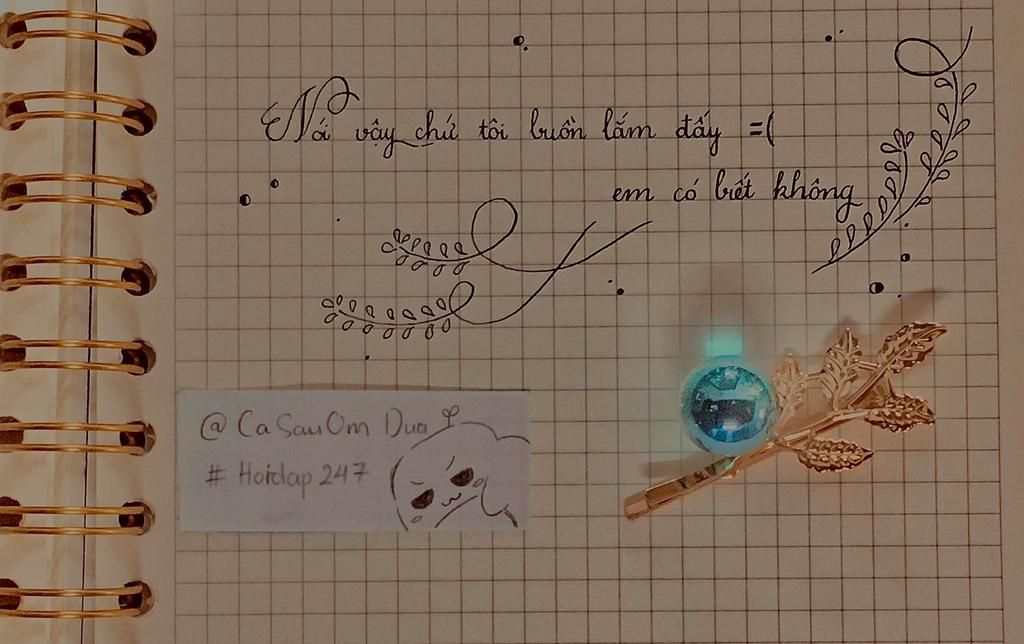 Nói vậy chứ tôi buồn lắm đấy =(
em có biết không
@ CaSauOm Dua
# Hoidap 247